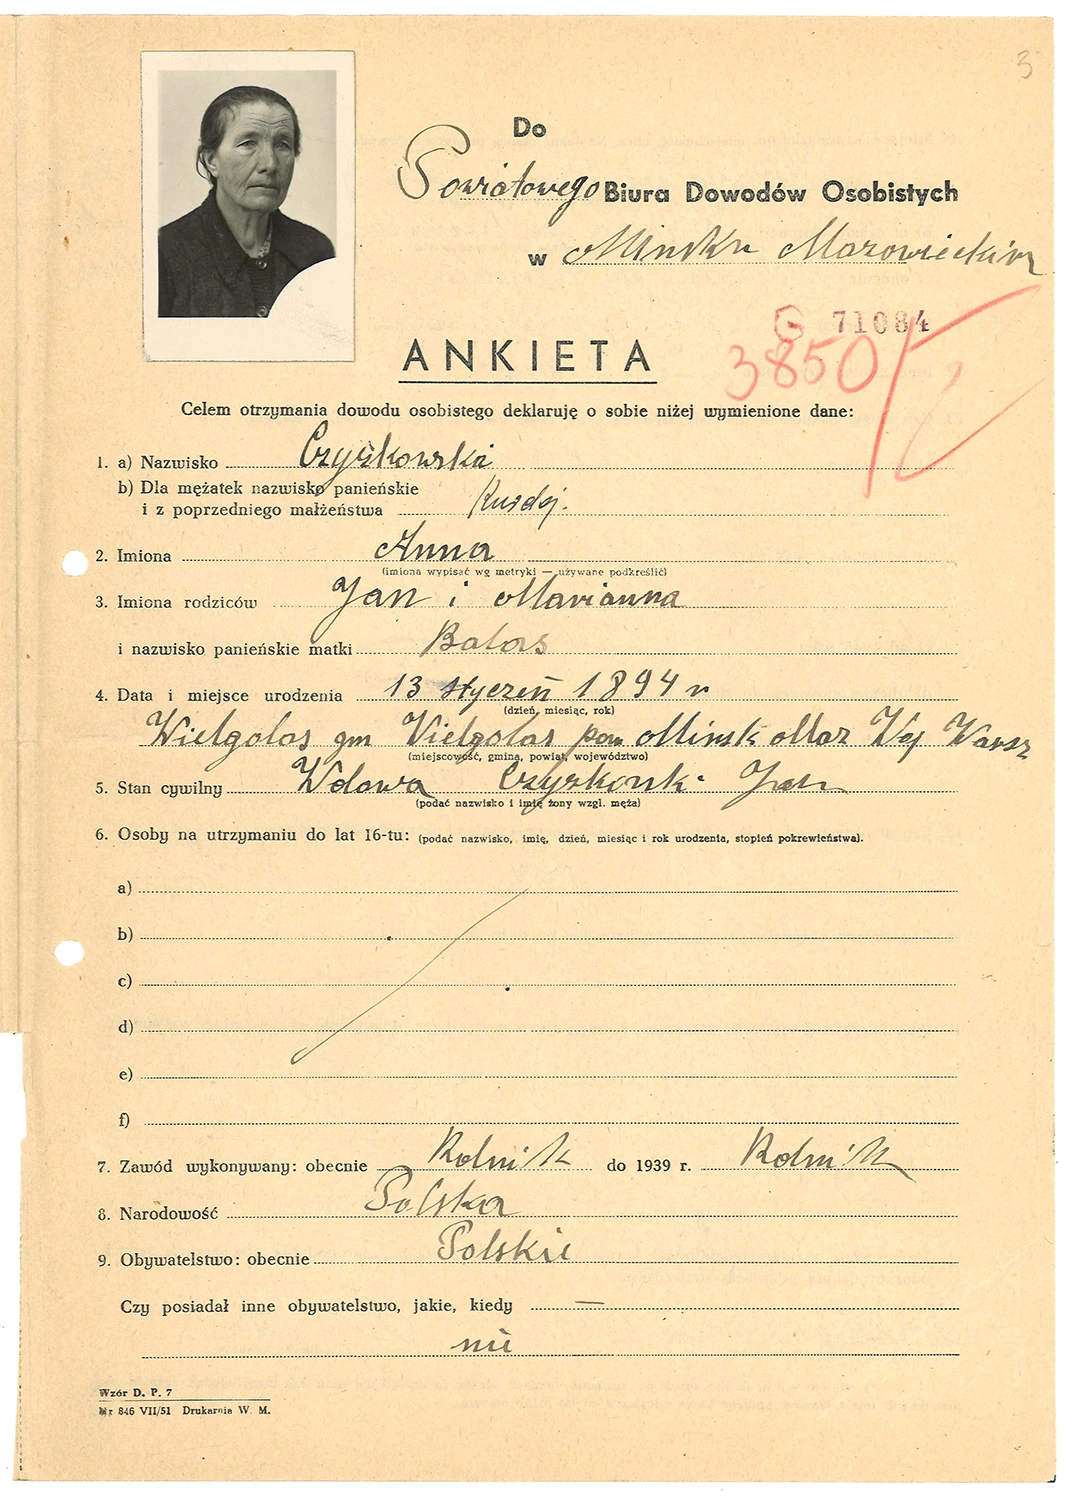 3
Do
Powiatowego Biura Dowodów Osobistych
w Mińsku Mazowieckim
G 71084
3850
ANKIETA
Celem otrzymania dowodu osobistego deklaruję o sobie niżej wymienione dane:
1. a) Nazwisko Czyżkowska
b) Dla mężatek nazwisko panieńskie
i z poprzedniego małżeństwa Kusdej.
2. Imiona Anna
(imiona wypisać wg metryki — używane podkreślić)
3. Imiona rodziców Jan i Marianna
i nazwisko panieńskie matki Balas
4. Data i miejsce urodzenia 13 styczeń 1894 r
(dzień, miesiąc, rok)
Wielgolas gm Wielgolas pow Mińsk Maz Woj Warsz
(miejscowość, gmina, powiat, województwo)
5. Stan cywilny Wdowa Czyżkowski Jan
(podać nazwisko i imię żony wzgl. męża)
6. Osoby na utrzymaniu do lat 16-tu: (podać nazwisko, imię, dzień, miesiąc i rok urodzenia, stopień pokrewieństwa).
a)
b)
c)
d)
e)
f)
7. Zawód wykonywany: obecnie Rolnik do 1939 r. Rolnik
8. Narodowość Polska
9. Obywatelstwo: obecnie Polskie
Czy posiadał inne obywatelstwo, jakie, kiedy —
nie
Wzór D. P. 7
Nr 846 VII/51 Drukarnia W. M.